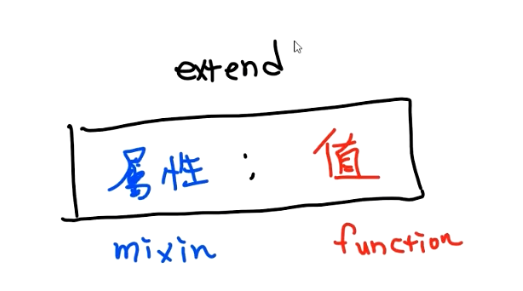 extend
属性 : 值
mixin function